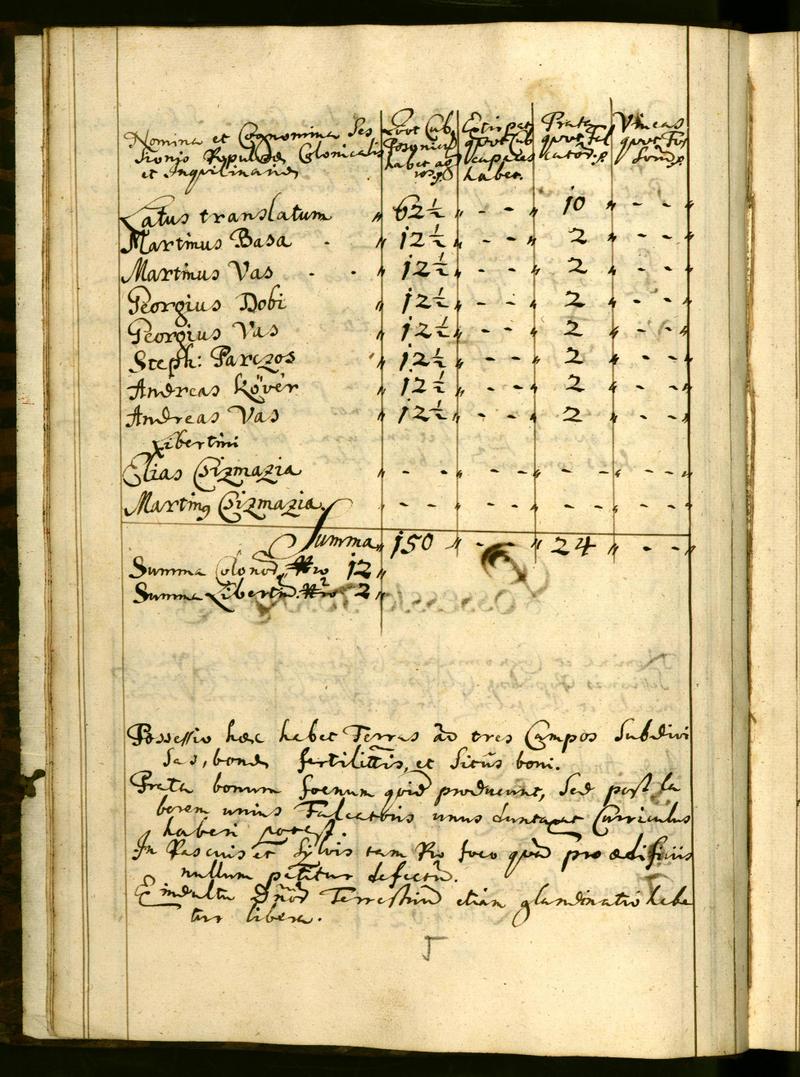 Nomina et Cognomina Ses Quot Cub. Extirpat. Prata Vineas
sionis Colonicalis Posonien quot Cub quot Fal quot Fos
et Inquilinaris habet ad habet. cator. sorum
Latus translatum " 62½ " - - " 10 " - - "
Martinus Basa - " 12½ " - - " 2 " - - "
Martinus Vas - - " 12½ " - - " 2 " - - "
Georgius Dobi " 12½ " - - " 2 " - - "
Georgius Vas " 12½ " - - " 2 " - - "
Steph: Parczos " 12½ " - - " 2 " - - "
Andreas Kövér " 12½ " - - " 2 " - - "
Andreas Vas " 12½ " - - " 2 " - - "
Libertini
Elias Csizmazia " - - " - - " - - " - - "
Martin9 Csizmazia " - - " - - " - - " - - "
Summa " 150 " - - " 24 " - - "
Summa Colonor. Nro 12 "
Summa Libertin. Nro 2 "
Possessio haec habet Terras ad tres Campos subdivi
sas, bonae fertilittis, et situs boni.
Prata bonum foenum quid producunt, sed post la
borem unius Falcatoris unus duntaxat Curriculus
haberi potest.
In Pascuis et sylvis tam pro foco quam pro aedificiis
nullum patitur defectum.
Ex indultu Dnor Terrestrium etiam glandinatio habe
tur libera.